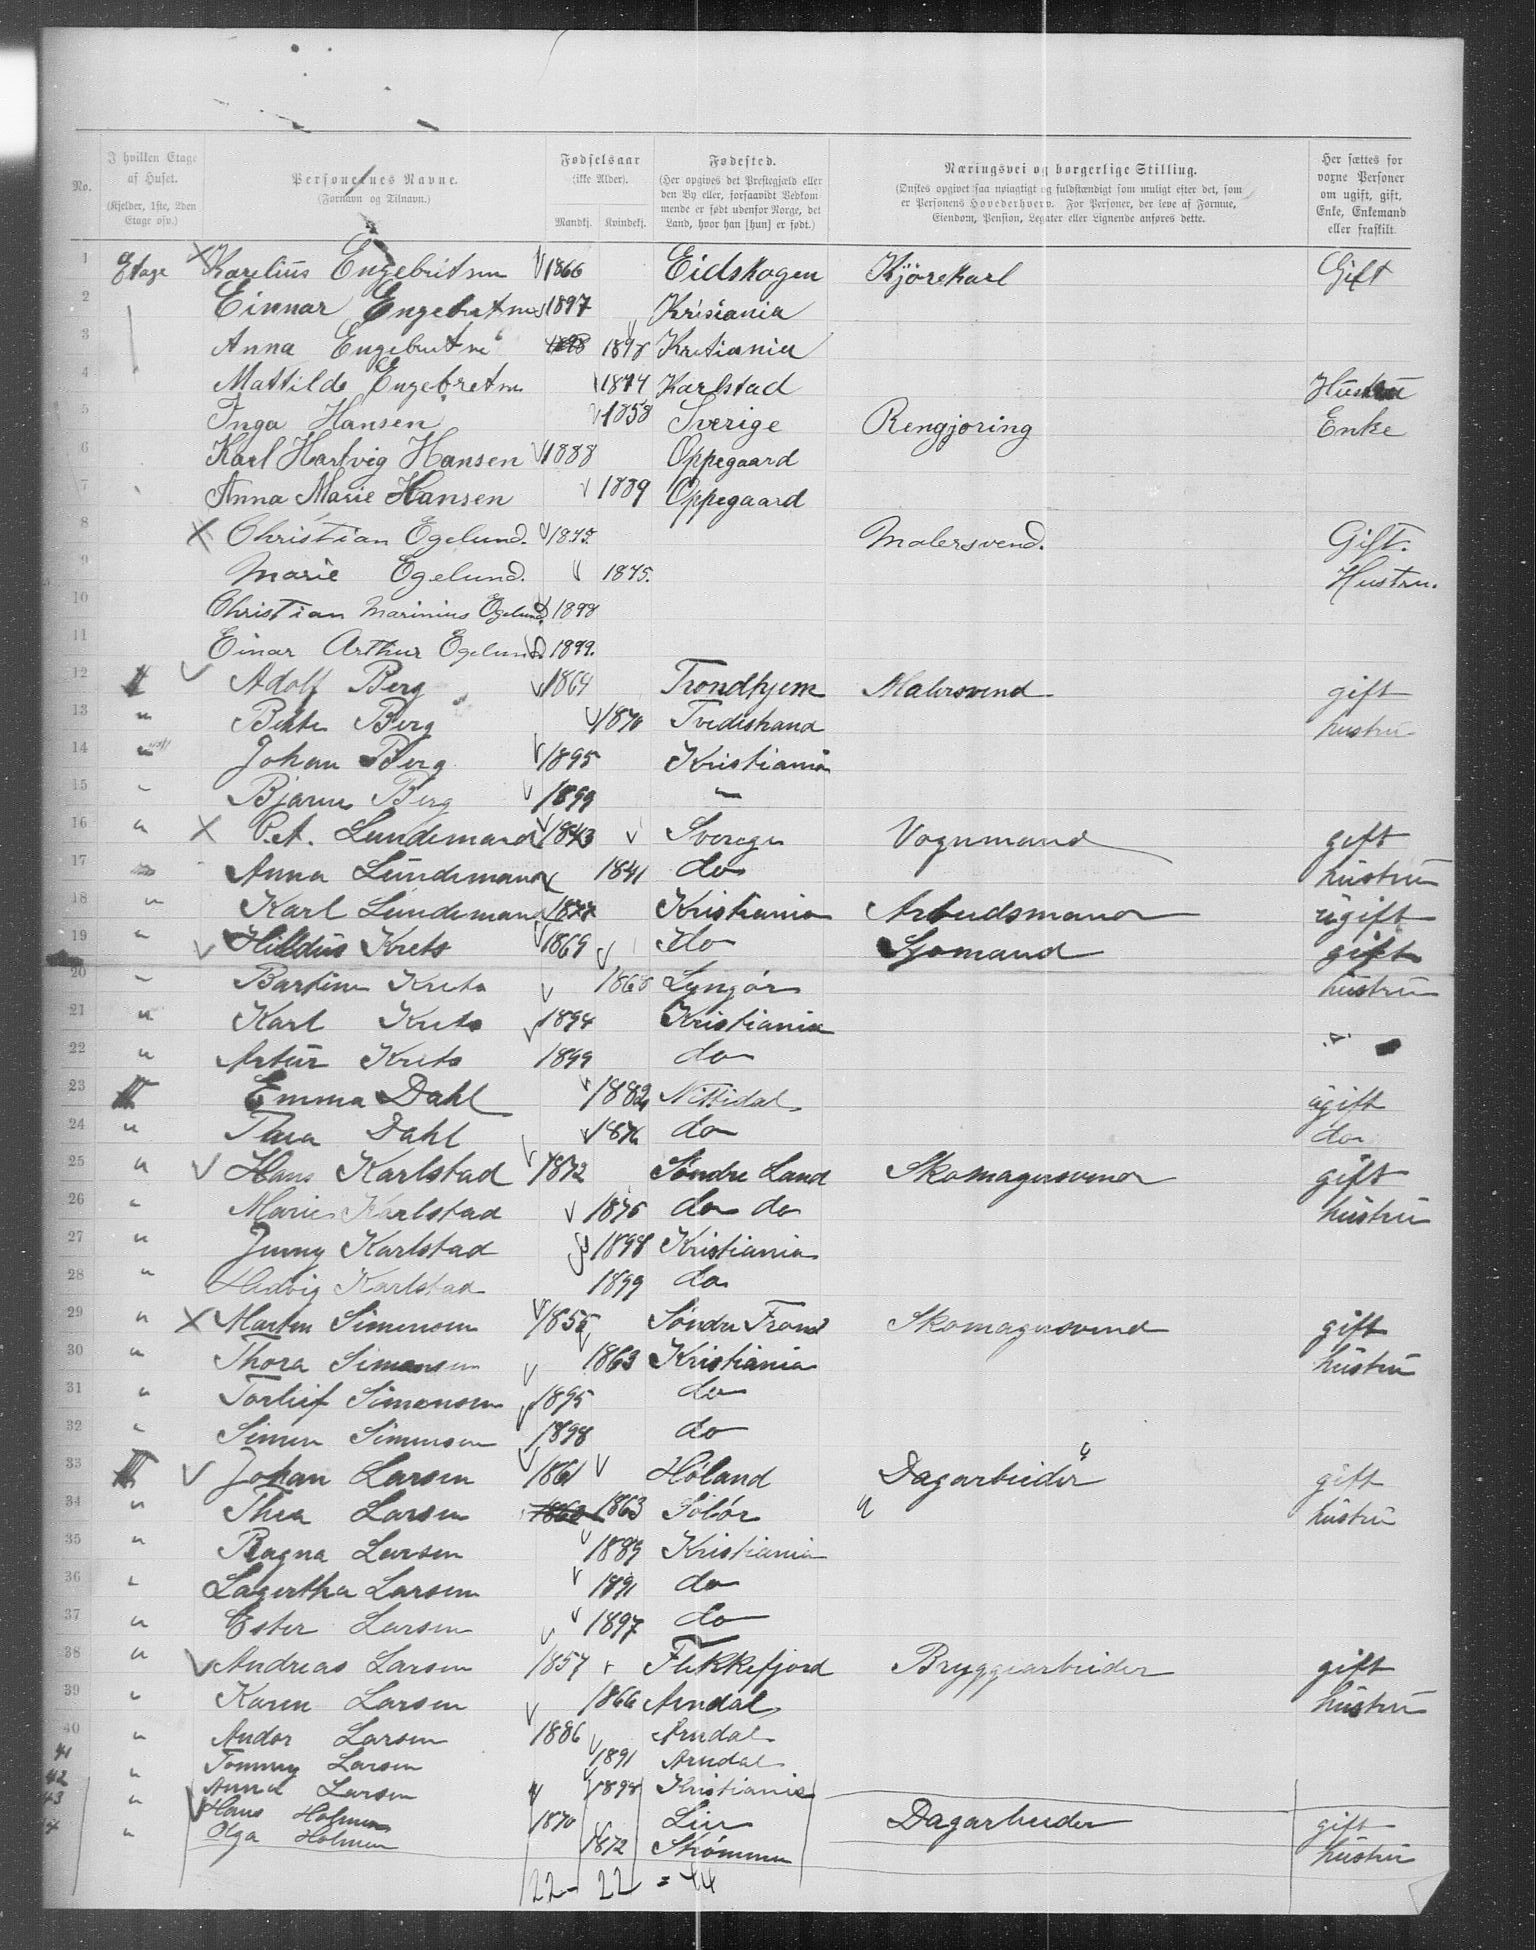 No. I hvilken Etage af Huset. (Kjelder, 1ste, 2den Etage osv.) Personernes Navne. (Fornavn og Tilnavn.) Fødselsaar (ikke Alder). Mandkj. Kvindekj. Fødested. (Her opgives det Prestegjæld eller den By eller, forsaavidt Vedkommende er født udenfor Norge, det Land, hvor han [hun] er født.) Næringsvei og borgerlige Stilling. (Ønskes opgivet saa nøiagtigt og fuldstændigt som muligt efter det, som er Personens Hovederhverv. For Personer, der leve af Formue, Eiendom, Pension, Legater eller Lignende anføres dette. Her sættes for voxne Personer om ugift, gift, Enke, Enkemand eller fraskilt.
1 Etage Karelius Engebritsen 1866 Eidskogen Kjörekarl Gift
2 Einnar Engebretsen 1897 Krisiania
3 Anna Engebretsen 1898 1898 Kristiania
4 Mattilde Engebretsen 1874 Karlstad Hustru
5 Inga Hansen 1858 Sverige Rengjøring Enke
6 Karl Hartvig Hansen 1888 Oppegaard
7 Anna Marie Hansen 1889 Oppegaard
8 Christian Egelund. 1875. Malersvend. Gift.
9 Marie Egelund. 1875. Hustru.
10 Christian Marinius Egelund. 1898
11 Einar Arthur Egelund. 1899.
12 II Adolf Berg 1864 Trondhjem Malersvend gift
13 " Berg 1870 Tvedestrand hustru
14 " Johan Berg 1895 Kristiania
15 " Bjarne Berg 1899 "
16 " C. A. Lundemand 1843 Sverige Vognmand gift
17 " Anna Lundemand 1841 do hustru
18 " Karl Lundemand 1877 Kristiania Arbeidsmand ugift
19 " Hildus Krets 1869 do Sjømand gift
20 " Bartine Krets 1868 Lyngør hustru
21 " Karl Krets 1894 Kristiania
22 " Artur Krets 1899 do
23 III Emma Dahl 1882 Nittidal ugift
24 " Thea Dahl 1876 do do
25 " Hans Karlstad 1872 Søndre Land Skomagersvend gift
26 " Marie Karlstad 1876 do do hustru
27 " Jenny Karlstad 1898 Kristiania
28 " Hedvig Karlstad 1899 do
29 " Marten Simensen 1855 Søndre Frond Skomagersvend gift
30 " Thora Simensen 1863 Kristiania hustru
31 " Torleif Simonsen 1895 do
32 " Simen Simensen 1898 do
33 III Johan Larsen 1861 Høland Dagarbeider gift
34 " Thea Larsen 1863 Solør " hustru
35 " Ragna Larsen 1889 Kristiania
36 " Lagertha Larsen 1891 do
37 " Ester Larsen 1897 do
38 " Andreas Larsen 1857 Flekkefjord Bryggearbeider gift
39 " Karen Larsen 1866 Arndal hustru
40 " Andor Larsen 1886 Arndal
41 " Tommy Larsen 1891 Arndal
42 Larsen 1898 Kristiania
43 " Hans Holmen 1870 Lier Dagarbeider gift
44 " Olga Holmen 1872 Strømmen hustru
22 - 22 = 44